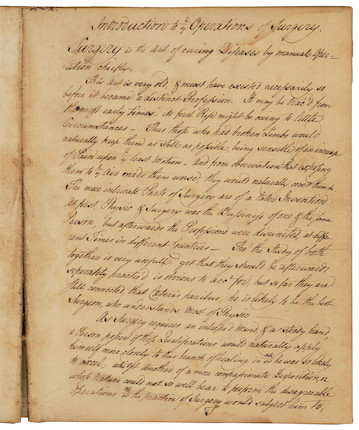 Introduction to ye Operations of Surgery.
Surgery is the Art of curing Diseases by manual Oper-
ation chiefly.
This Art is very old, & must have existed necessarily so
before it became a distinct Profession. It may be trac'd from
the most early times. At first Rise might be owing to little
Circumstances — Thus those who had broken Limbs would
naturally keep them as still as possible being sensible of an increase
of Pain upon ye least motion. And from observation that exposing
them to ye Air made them worse, they would naturally cover them &c
The more intricate Parts of Surgery are of a later Invention
At first Physic & Surgery was the Business of one & the same
Person, but afterwards the Professions were disunited at differ-
ent Times in different Countries — Tho the Study of both
together is very usefull, yet that they should be afterwards
separately practised is obvious to acct for, but so far they are
still connected that Cæteris paribus, he is likely to be the best
Surgeon who understands most of Physic —
As Surgery requires an intrepid Mind & a steady hand,
a Person possest of these Qualifications would naturally apply
himself more closely to this branch of healing in wch he was so likely
to excel, whilst another of a more compassionate Disposition, &
whose Nature could not so well bear to perform the disagreeable
Operations wch the practice of Surgery would subject him to,